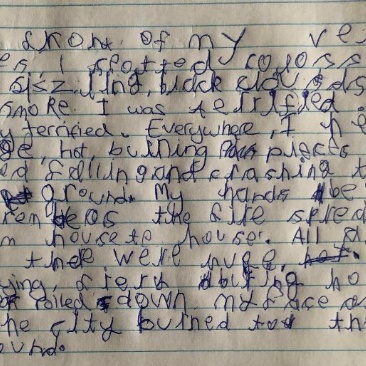 front of my ve
es I spotted coloss
sizzling, black clouds
smoke. I was terrified.
y terrified. Everywhere, I
ge, hot burning places
ed falling and crashing t
ground. My hands be
the fire spred
m house to house. All
ther were huge,
ying, firery burning ho
rolled down my face as
he city burned to the
ound.